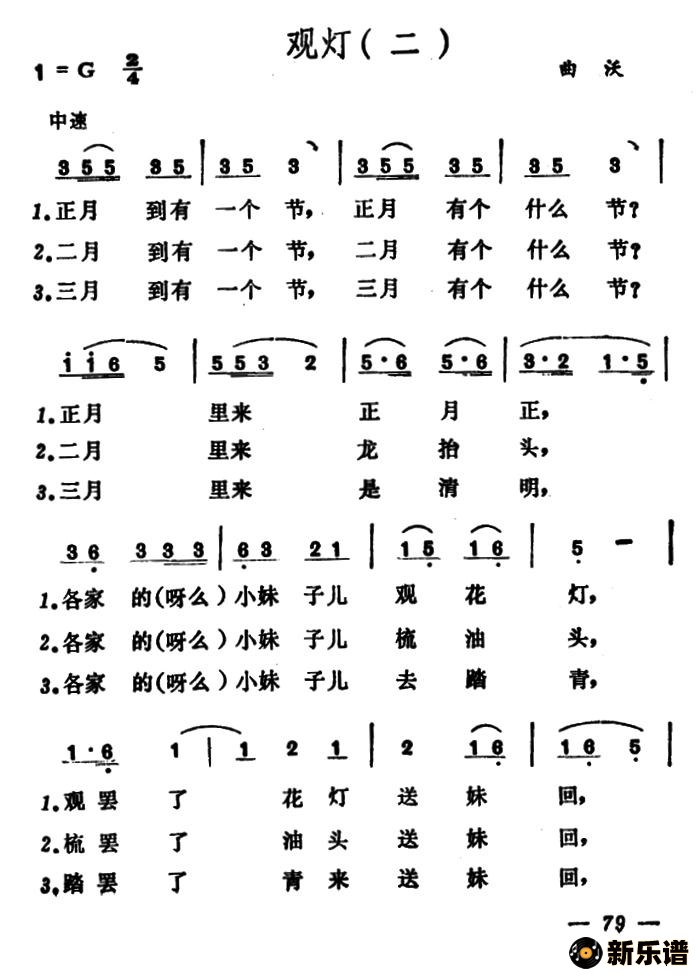 观灯(二)
1=G 2/4 曲沃
中速
3 5 5 3 5 | 3 5 3 | 3 5 5 3 5 | 3 5 3 |
1.正月 到有 一个 节, 正月 有个 什么 节?
2.二月 到有 一个 节, 二月 有个 什么 节?
3.三月 到有 一个 节, 三月 有个 什么 节?
i i 6 5 | 5 5 3 2 | 5·6 5·6 | 3·2 1·5 |
1.正月 里来 正 月 正,
2.二月 里来 龙 抬 头,
3.三月 里来 是 清 明,
3 6 3 3 3 | 6 3 2 1 | 1 5 1 6 | 5 — |
1.各家 的(呀么)小妹 子儿 观 花 灯,
2.各家 的(呀么)小妹 子儿 梳 油 头,
3.各家 的(呀么)小妹 子儿 去 踏 青,
1·6 1 | 1 2 1 | 2 1 6 | 1 6 5 |
1.观罢 了 花 灯 送 妹 回,
2.梳罢 了 油 头 送 妹 回,
3.踏罢 了 青 来 送 妹 回,
— 79 —
新乐谱